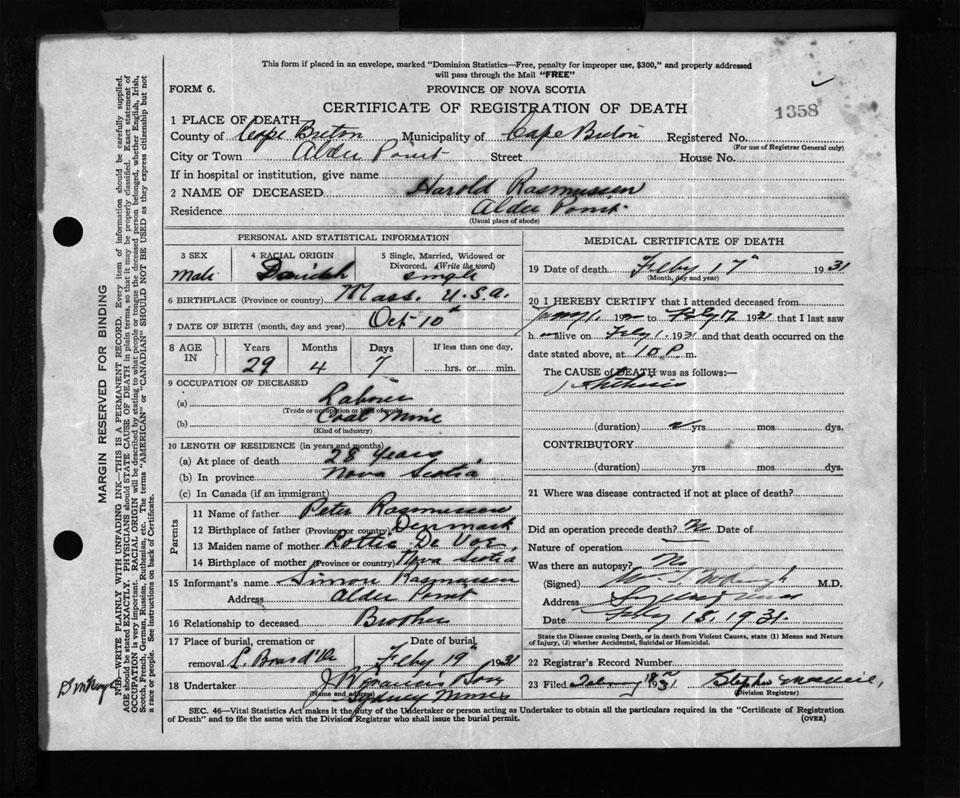 This form if placed in an envelope, marked "Dominion Statistics—Free, penalty for improper use, $300," and properly addressed
will pass through the Mail "FREE"
FORM 6.
PROVINCE OF NOVA SCOTIA
CERTIFICATE OF REGISTRATION OF DEATH
1358
1 PLACE OF DEATH—
County of Cape Breton Municipality of Cape Breton Registered No.
(For use of Registrar General only)
City or Town Alder Point Street House No.
If in hospital or institution, give name
2 NAME OF DECEASED Harold Rasmussen
Residence Alder Point
(Usual place of abode)
PERSONAL AND STATISTICAL INFORMATION
3 SEX 4 RACIAL ORIGIN 5 Single, Married, Widowed or
Divorced. (Write the word)
Male Danish single
6 BIRTHPLACE (Province or country) Mass. U.S.A.
7 DATE OF BIRTH (month, day and year) Oct 10th
8 AGE IN Years Months Days If less than one day,
29 4 7 hrs. or min.
9 OCCUPATION OF DECEASED
(a) Laborer
(Trade or occupation or kind of work)
(b) Coal Mine
(Kind of industry)
10 LENGTH OF RESIDENCE (in years and months)
(a) At place of death 28 Years
(b) In province Nova Scotia
(c) In Canada (if an immigrant)
Parents
11 Name of father Peter Rasmussen
12 Birthplace of father (Province or country) Denmark
13 Maiden name of mother Lottie De Voe
14 Birthplace of mother (Province or country) Nova Scotia
15 Informant's name Simon Rasmussen
Address Alder Point
16 Relationship to deceased Brother
17 Place of burial, cremation or Date of burial
removal L. Bras d'Or Feby 19th 1931
18 Undertaker
(Name and address)
Sydney Mines
MEDICAL CERTIFICATE OF DEATH
19 Date of death Feby 17th 1931
(Month, day and year)
20 I HEREBY CERTIFY that I attended deceased from
to Feby 17 1931 that I last saw
h alive on Feby 1 1931 and that death occurred on the
date stated above, at 10 P. m.
The CAUSE of DEATH was as follows:—
Phthisis
(duration) yrs mos dys.
CONTRIBUTORY
(duration) yrs. mos. dys.
21 Where was disease contracted if not at place of death?
Did an operation precede death? No Date of
Nature of operation
Was there an autopsy? No
(Signed) M.D.
Address
Date Feby 18, 1931
State the Disease causing Death, or in death from Violent Causes, state (1) Means and Nature
of Injury, (2) whether Accidental, Suicidal or Homicidal.
22 Registrar's Record Number
23 Filed February 18th 1931
(Division Registrar)
SEC. 46—Vital Statistics Act makes it the duty of the Undertaker or person acting as Undertaker to obtain all the particulars required in the "Certificate of Registration
of Death" and to file the same with the Division Registrar who shall issue the burial permit.
(OVER)
MARGIN RESERVED FOR BINDING
N.B.—WRITE PLAINLY WITH UNFADING INK—THIS IS A PERMANENT RECORD. Every item of information should be carefully supplied.
AGE should be stated EXACTLY. PHYSICIANS should STATE CAUSE OF DEATH in plain terms, so that it may be properly classified. Exact statement of
OCCUPATION is very important. RACIAL ORIGIN will be described by stating to what people or tongue the deceased person belonged, whether English, Irish,
Scotch, French, German, Russian, Ruthenian, etc. The terms "AMERICAN" or "CANADIAN" SHOULD NOT BE USED as they express citizenship but not
a race or people. See instructions on back of Certificate.